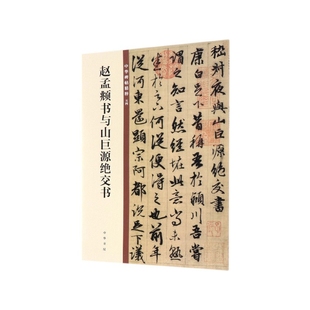 赵孟頫书与山巨源绝交书
中华书局
嵇叔夜與山巨源絕交書
康白足下昔稱吾於潁川吾嘗
謂之知言然經怪此意尚未熟
悉於足下何從便得之也前年
從河東還顯宗阿都說足下議